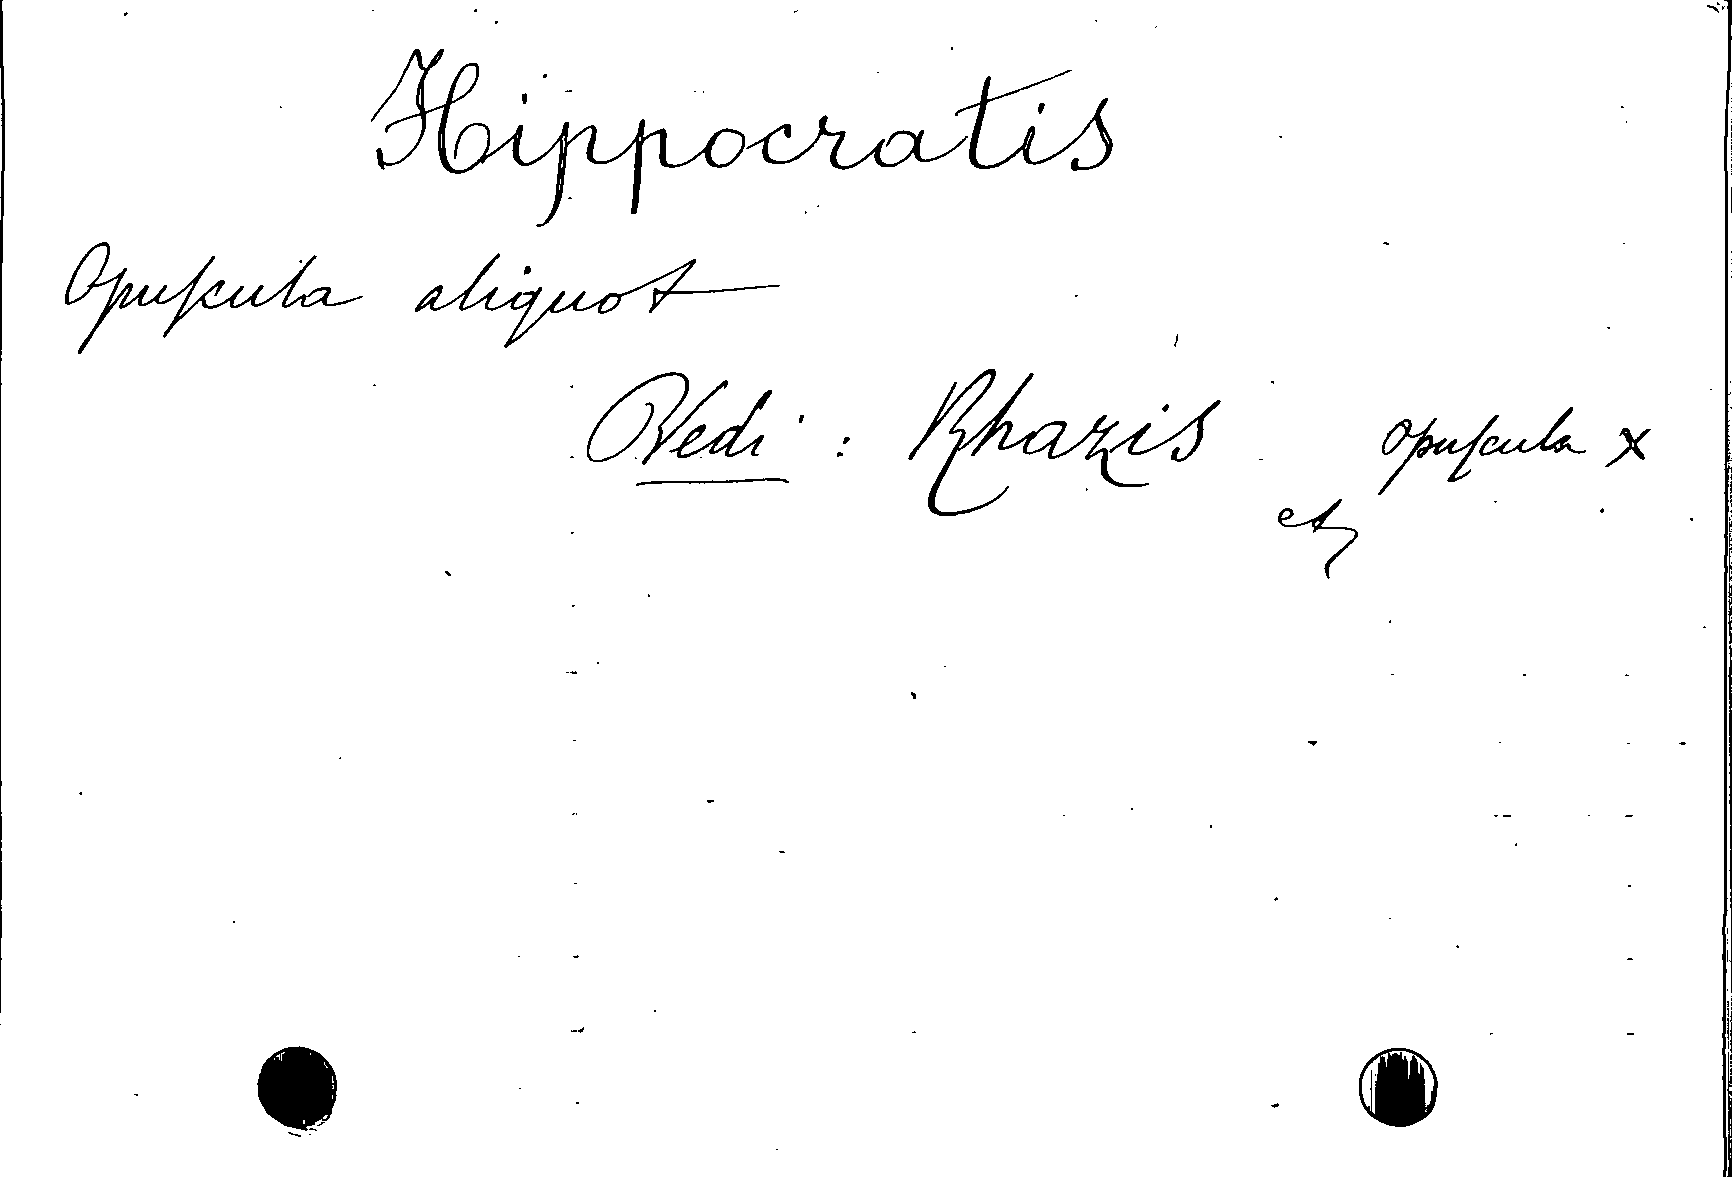 Hippocratis
Opuſcula aliquot
Vedi : Rhazis opuſcula x
et